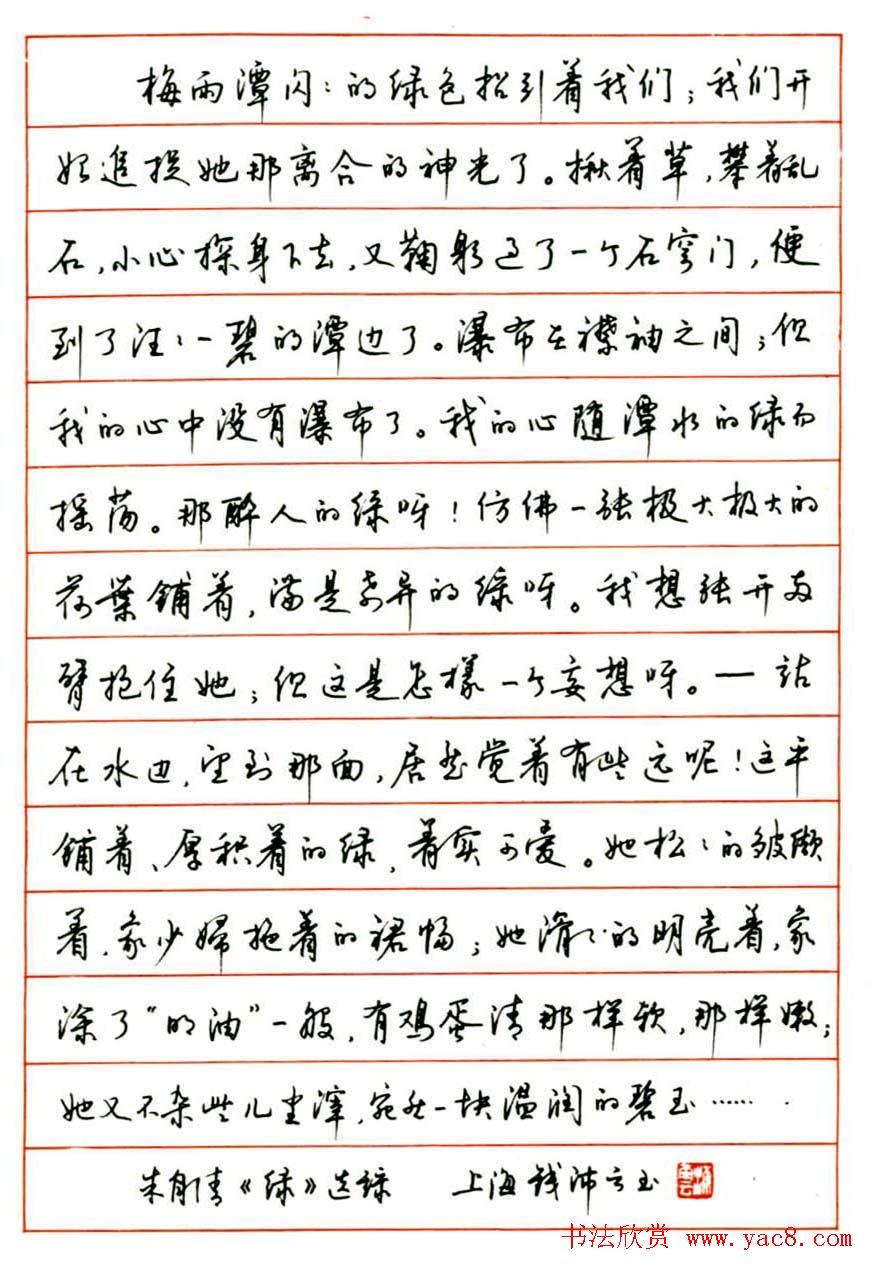 梅雨潭闪〻的绿色招引着我们；我们开
始追捉她那离合的神光了。揪着草，攀着乱
石，小心探身下去，又鞠躬过了一个石穹门，便
到了汪〻一碧的潭边了。瀑布在襟袖之间；但
我的心中没有瀑布了。我的心随潭水的绿而
摇荡。那醉人的绿呀！仿佛一张极大极大的
荷葉铺着，满是奇异的绿呀。我想张开两
臂抱住她；但这是怎樣一个妄想呀。——站
在水边，望到那面，居然觉着有些远呢！这平
铺着、厚积着的绿，着实可爱。她松〻的皱缬
着，象少婦拖着的裙幅；她滑〻的明亮着，象
涂了“明油”一般，有鸡蛋清那样软，那样嫩；
她又不杂些儿尘滓，宛然一块温润的碧玉……
朱自清《绿》选录 上海钱沛云书
书法欣赏 www.yac8.com